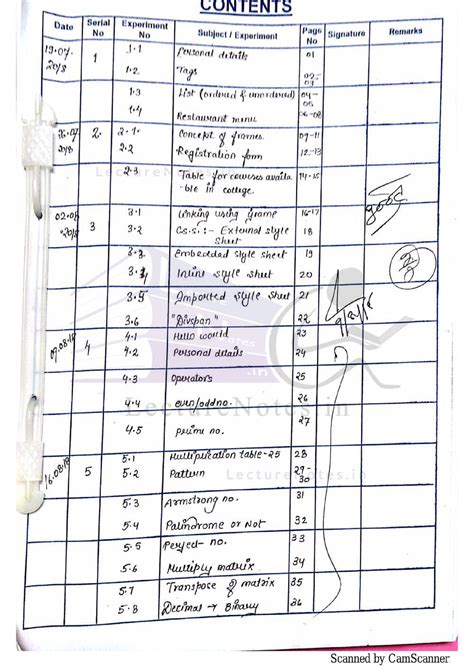 CONTENTS
Date Serial No Experiment No Subject / Experiment Page No Signature Remarks
19.07 2018 1 1.1 Personal details 01
1.2 Tags 02-03
1.3 List (ordered & unordered) 04-05
1.4 Restaurant menu 06-08
26.07 2018 2. 2.1. Concept of frames 09-11
2.2 Registration form 12-13
LectureNotes.in
2.3 Table for courses availa 14-15
ble in college.
02.08 2018 3 3.1 Linking using frame 16-17
3.2 C.S.S:- External style 18
sheet
3.3 Embedded style sheet 19
3.4 Inline style sheet 20
3.5 Imported style sheet 21
3.6 "Divspan" 22
09.08.18 4 4.1 Hello world 23
4.2 Personal details 24
4.3 Operators 25
4.4 even/odd no. 26
LectureNotes.in
4.5 prime no. 27
16.08.18 5 5.1 Multiplication table-25 28
5.2 Pattern 29-30
LectureNotes.in
5.3 Armstrong no. 31
5.4 Palindrome or Not 32
5.5 Perfect- no. 33
5.6 Multiply matrix 34
5.7 Transpose of matrix 35
5.8 Decimal → Binary 36
Good
Scanned by CamScanner